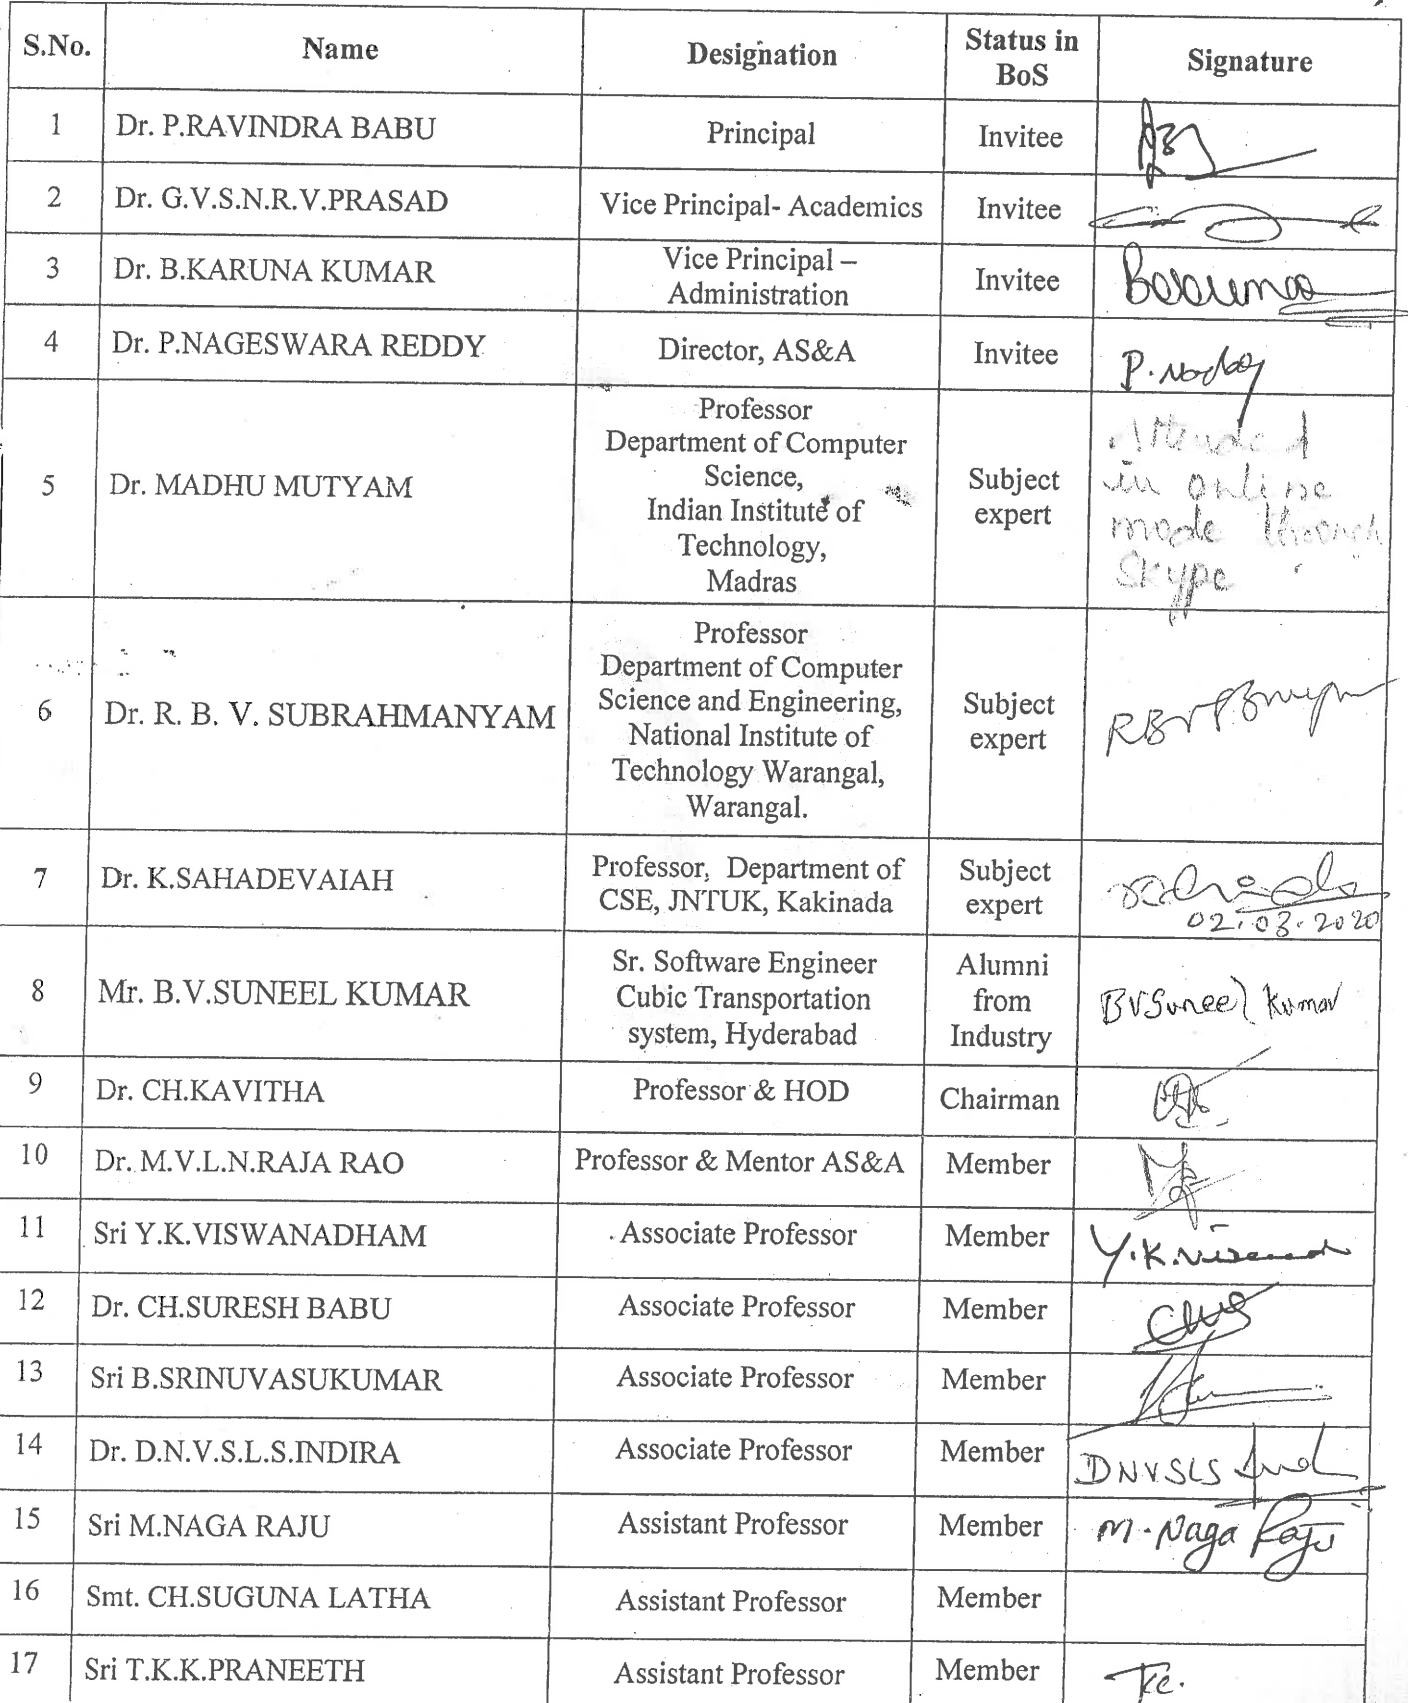 S.No. Name Designation Status in BoS Signature
1 Dr. P.RAVINDRA BABU Principal Invitee
2 Dr. G.V.S.N.R.V.PRASAD Vice Principal- Academics Invitee
3 Dr. B.KARUNA KUMAR Vice Principal – Administration Invitee
4 Dr. P.NAGESWARA REDDY Director, AS&A Invitee
5 Dr. MADHU MUTYAM Professor
Department of Computer
Science,
Indian Institute of
Technology,
Madras
Subject
expert
Attended
in online
mode through
Skype
6 Dr. R. B. V. SUBRAHMANYAM Professor
Department of Computer
Science and Engineering,
National Institute of
Technology Warangal,
Warangal.
Subject
expert
7 Dr. K.SAHADEVAIAH Professor, Department of
CSE, JNTUK, Kakinada
Subject
expert
02.03.2020
8 Mr. B.V.SUNEEL KUMAR Sr. Software Engineer
Cubic Transportation
system, Hyderabad
Alumni
from
Industry
BVSuneel Kumar
9 Dr. CH.KAVITHA Professor & HOD Chairman
10 Dr. M.V.L.N.RAJA RAO Professor & Mentor AS&A Member
11 Sri Y.K.VISWANADHAM Associate Professor Member
12 Dr. CH.SURESH BABU Associate Professor Member
13 Sri B.SRINUVASUKUMAR Associate Professor Member
14 Dr. D.N.V.S.L.S.INDIRA Associate Professor Member DNVSLS
15 Sri M.NAGA RAJU Assistant Professor Member M.Naga Raju
16 Smt. CH.SUGUNA LATHA Assistant Professor Member
17 Sri T.K.K.PRANEETH Assistant Professor Member